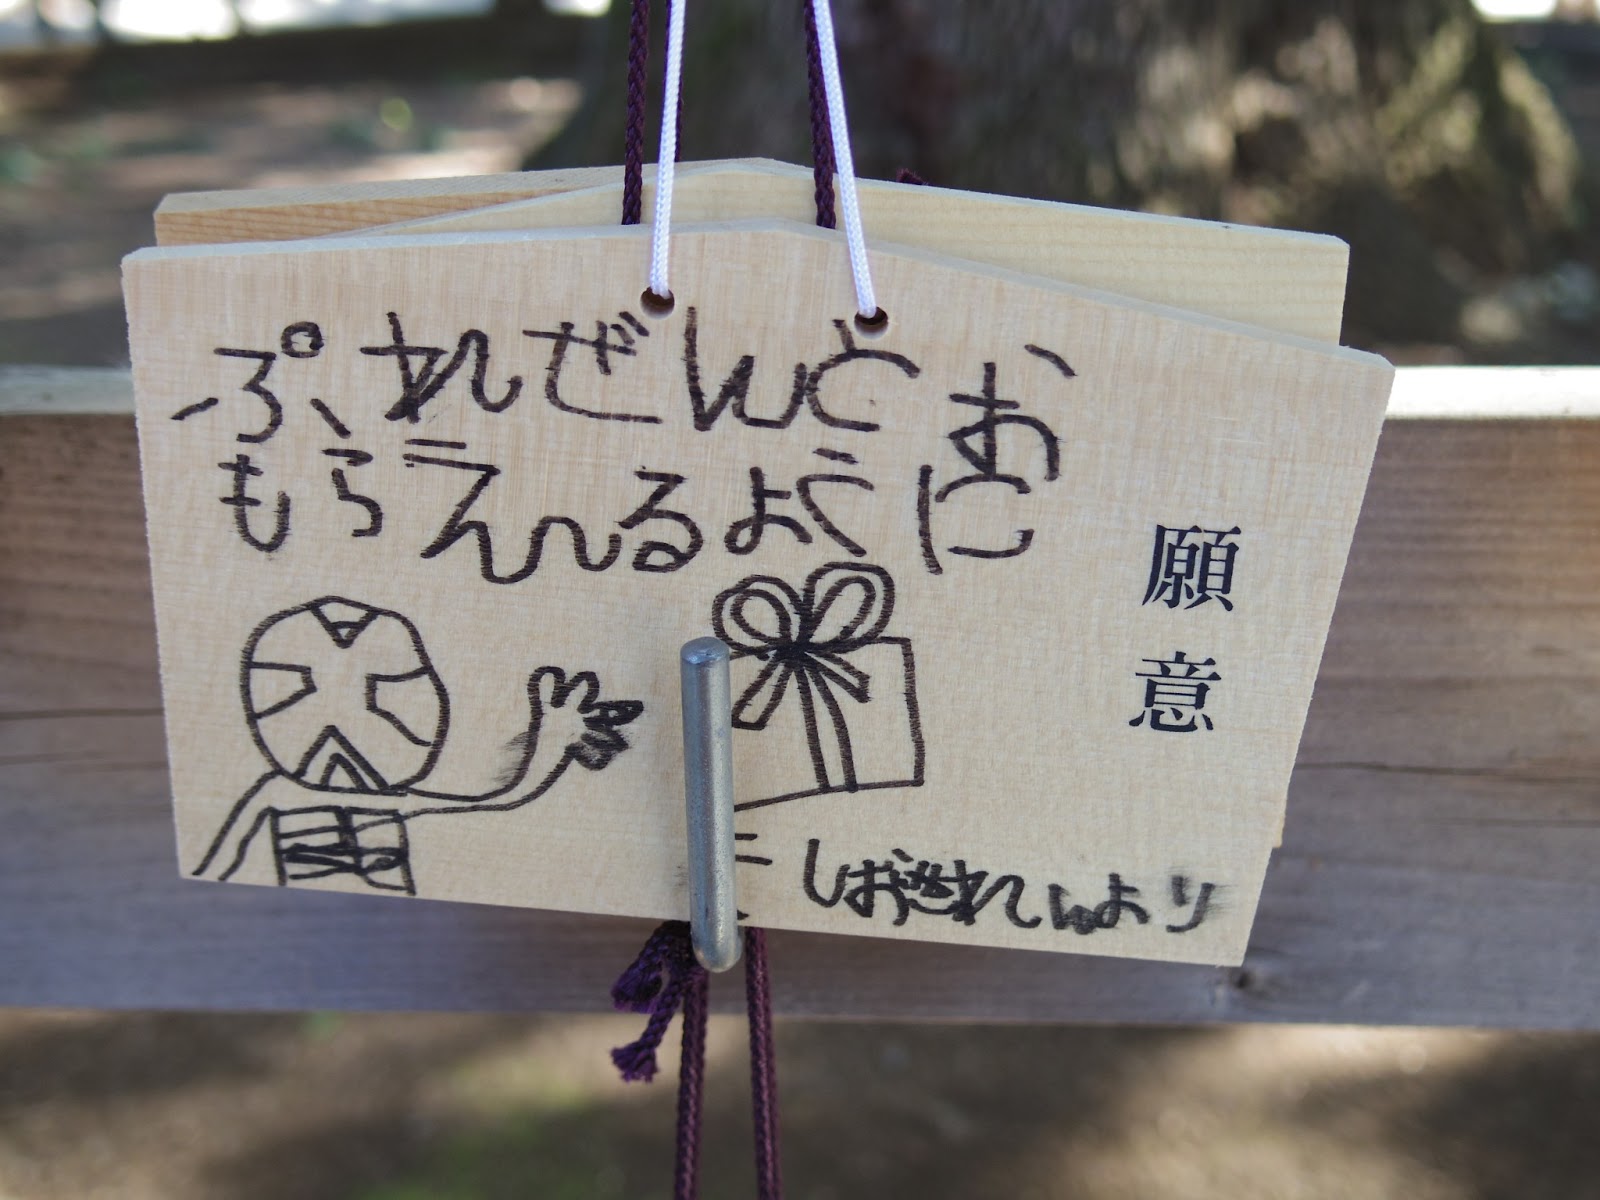 ぷれぜんとお
もらえるように
願意
より